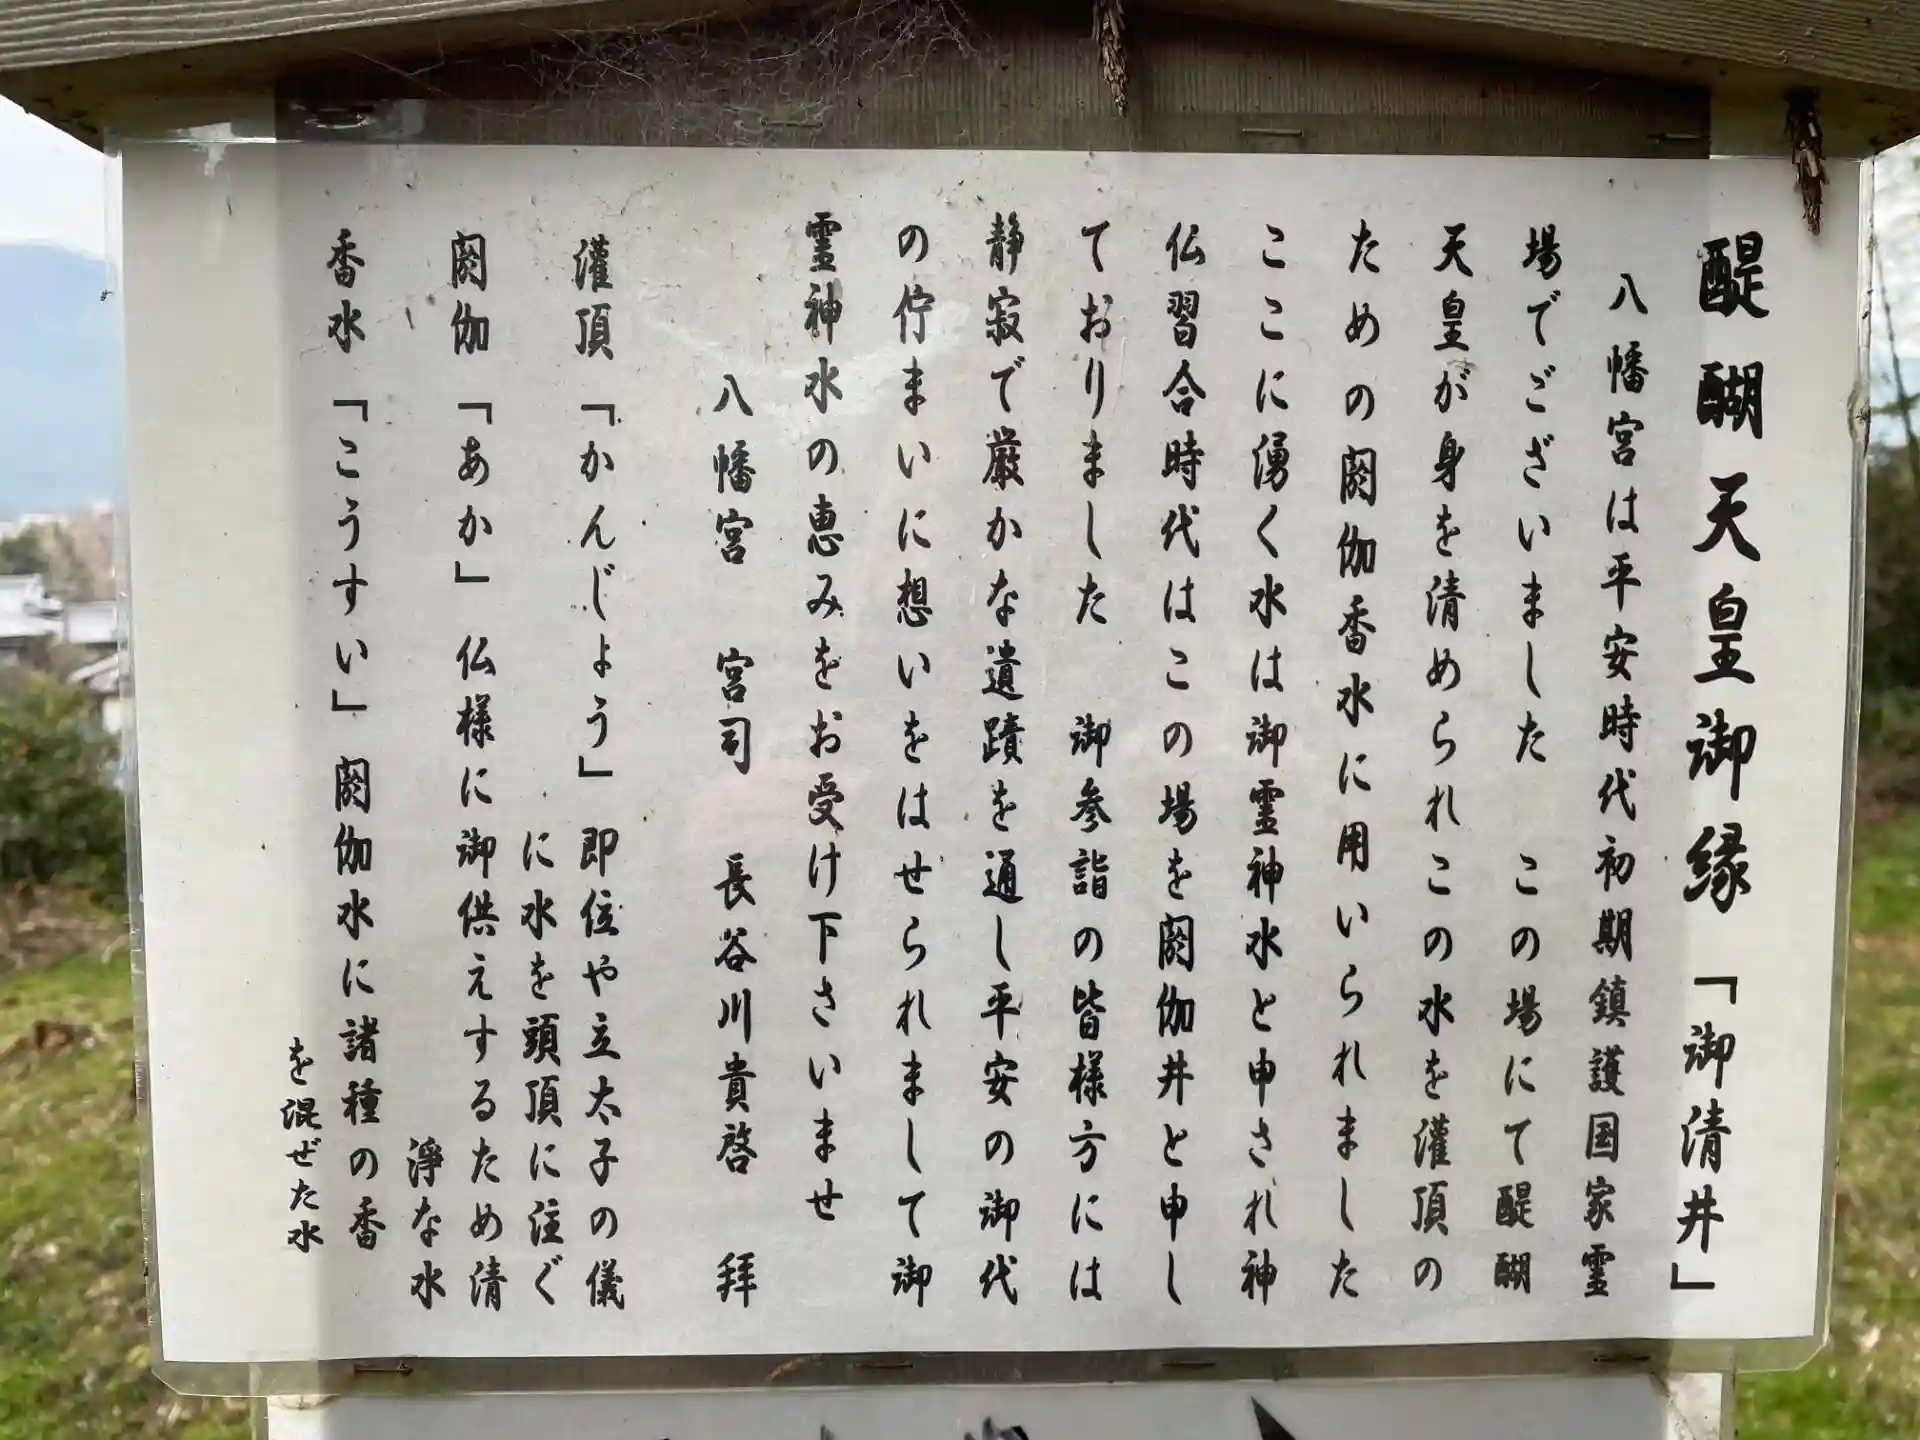 醍醐天皇御縁「御清井」
八幡宮は平安時代初期鎮護国家霊
場でございました　この場にて醍醐
天皇が身を清められこの水を灌頂の
ための閼伽香水に用いられました
ここに湧く水は御霊神水と申され神
仏習合時代はこの場を閼伽井と申し
ておりました　御参詣の皆様方には
静寂で厳かな遺蹟を通し平安の御代
の佇まいに想いをはせられまして御
霊神水の恵みをお受け下さいませ
八幡宮　宮司　長谷川貴啓　拝
灌頂「かんじょう」即位や立太子の儀
に水を頭頂に注ぐ
閼伽「あか」仏様に御供えするため清
淨な水
香水「こうすい」閼伽水に諸種の香
を混ぜた水